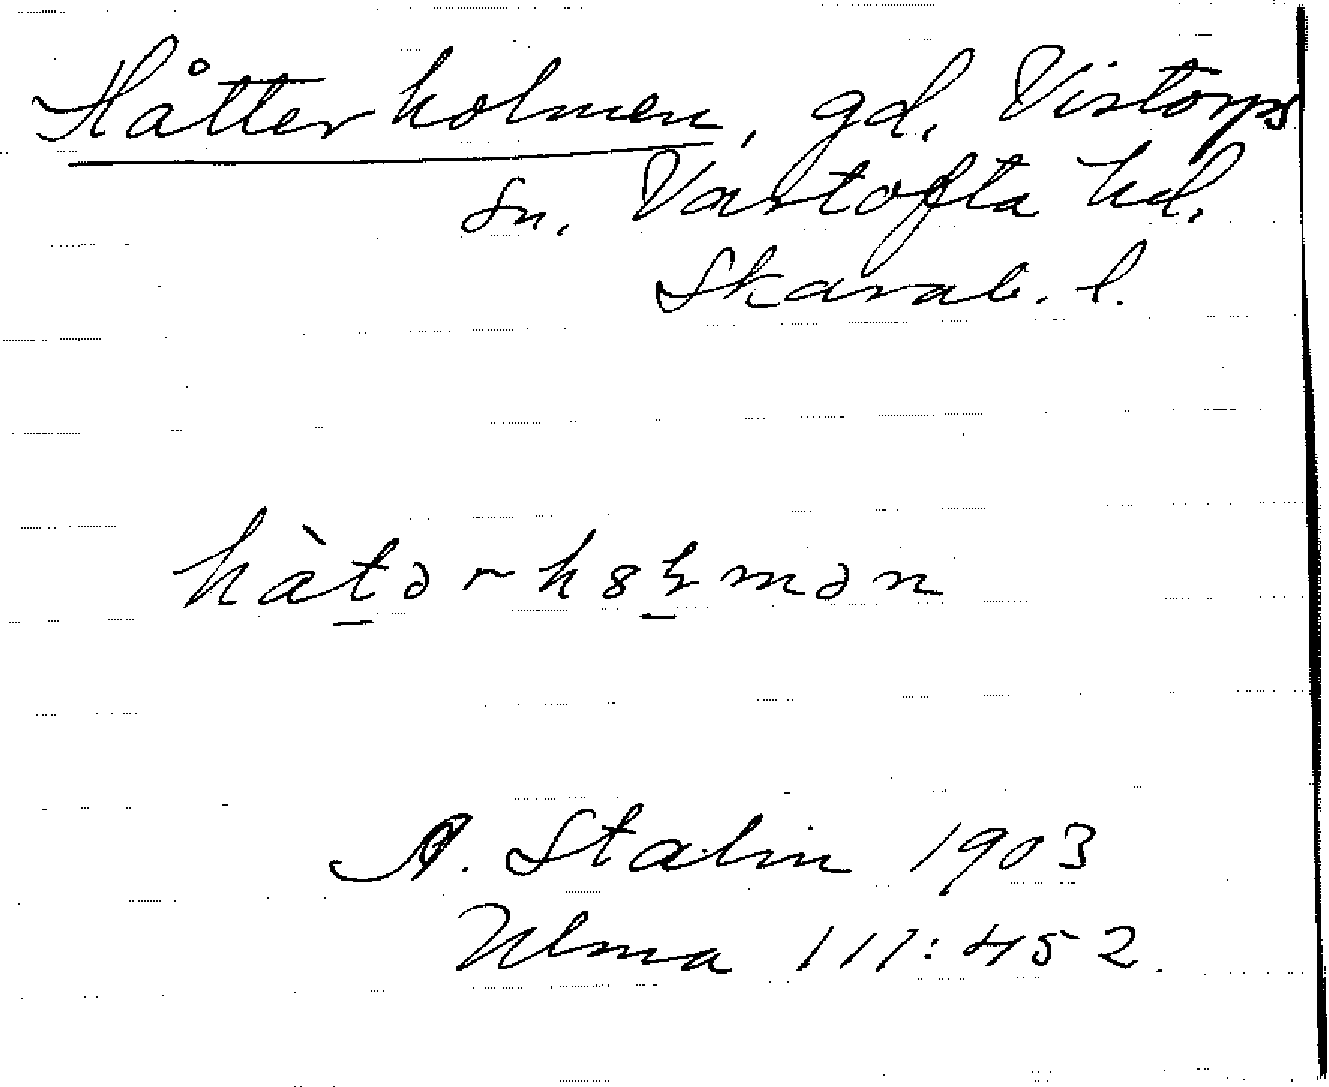 Håtterholmen, gd, Vistorps
sn. Vartofta hd.
Skarab. l.
hàtər hɷɭmən
A. Stalin 1903
Ulma 111:452.